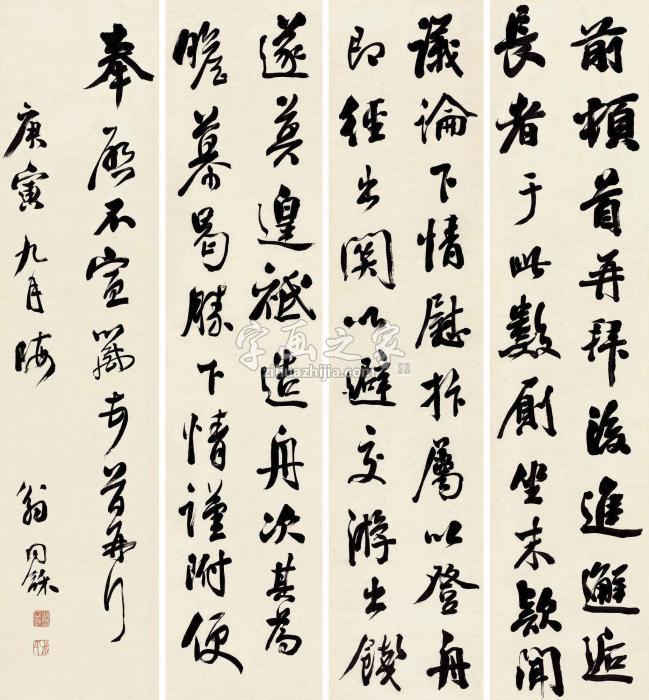 前頓首再拜後進邂逅
長者于此數廁坐末款聞
議論下情慰抃屬以登舟
即出關以避交游出餞
遂莫遑祗造舟次其為
瞻慕曷勝下情謹附便
奉啟不宣首再
庚寅九月晦
翁同龢
字画之家
zihuazhijia.com